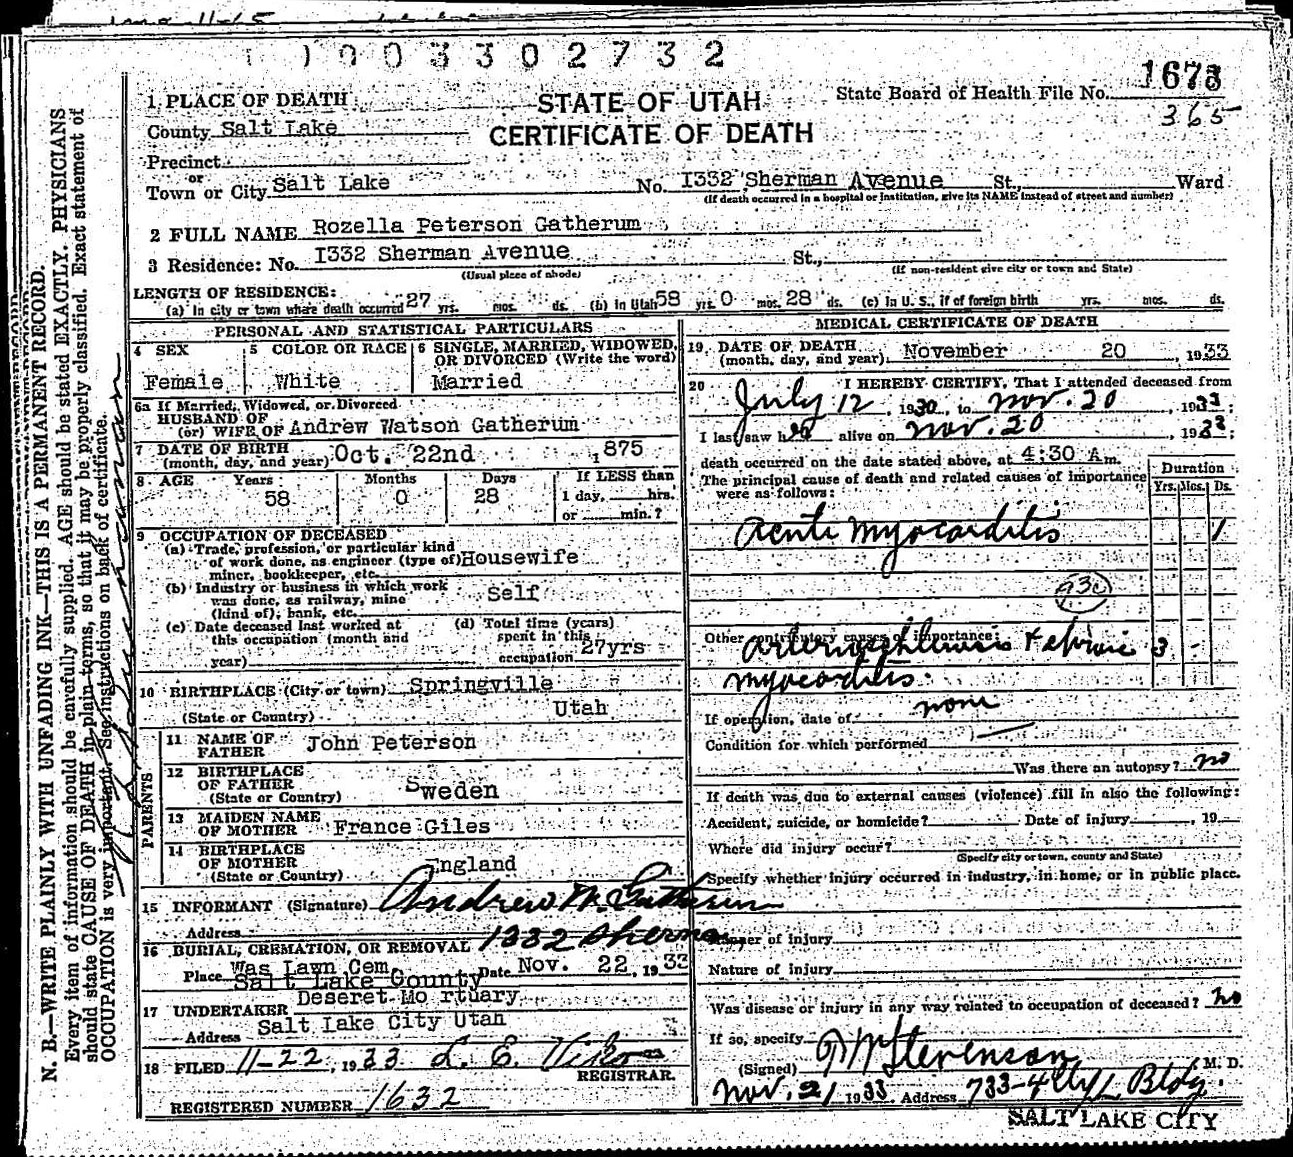 1003302732
STATE OF UTAH
CERTIFICATE OF DEATH
State Board of Health File No. 1673
365
1 PLACE OF DEATH
County Salt Lake
Precinct
or
Town or City Salt Lake No. I332 Sherman Avenue St., Ward
(If death occurred in a hospital or institution, give its NAME instead of street and number)
2 FULL NAME Rozella Peterson Gatherum
3 Residence: No. I332 Sherman Avenue St.,
(Usual place of abode) (If non-resident give city or town and State)
LENGTH OF RESIDENCE:
(a) In city or town where death occurred 27 yrs. mos. ds. (b) in Utah 58 yrs. 0 mos. 28 ds. (c) In U. S., if of foreign birth yrs. mos. ds.
PERSONAL AND STATISTICAL PARTICULARS
4 SEX 5 COLOR OR RACE 6 SINGLE, MARRIED, WIDOWED, OR DIVORCED (Write the word)
Female White Married
6a If Married, Widowed, or Divorced
HUSBAND OF
(or) WIFE OF Andrew Watson Gatherum
7 DATE OF BIRTH
(month, day, and year) Oct. 22nd 1875
8 AGE Years Months Days If LESS than
58 0 28 1 day, hrs.
or min.?
9 OCCUPATION OF DECEASED
(a) Trade, profession, or particular kind
of work done, as engineer (type of) Housewife
miner, bookkeeper, etc.
(b) Industry or business in which work
was done, as railway, mine Self
(kind of); bank, etc.
(c) Date deceased last worked at
this occupation (month and
year)
(d) Total time (years)
spent in this
occupation 27yrs
10 BIRTHPLACE (City or town) Springville
(State or Country) Utah
PARENTS
11 NAME OF
FATHER John Peterson
12 BIRTHPLACE
OF FATHER
(State or Country) Sweden
13 MAIDEN NAME
OF MOTHER France Giles
14 BIRTHPLACE
OF MOTHER
(State or Country) England
15 INFORMANT (Signature) Andrew W. Gatherum
Address 1332 Sherman
16 BURIAL, CREMATION, OR REMOVAL
Place Was Lawn Cem Date Nov. 22, 1933
Salt Lake County
17 UNDERTAKER Deseret Mo rtuary
Address Salt Lake City Utah
18 FILED 11-22, 1933 L. E.
REGISTRAR.
REGISTERED NUMBER 1632
MEDICAL CERTIFICATE OF DEATH
19 DATE OF DEATH
(month, day, and year) November 20, 1933
20 I HEREBY CERTIFY, That I attended deceased from
July 12, 1930, to Nov. 20, 1933;
I last saw her alive on Nov. 20, 1933;
death occurred on the date stated above, at 4:30 A m.
The principal cause of death and related causes of importance
were as follows:
Duration
Yrs. Mos. Ds.
Acute myocarditis 1
93c
Other contributory causes of importance:
Arteriosclerosis & chronic 3 -
myocarditis.
If operation, date of none
Condition for which performed
Was there an autopsy? no
If death was due to external causes (violence) fill in also the following:
Accident, suicide, or homicide? Date of injury, 19
Where did injury occur?
(Specify city or town, county and State)
Specify whether injury occurred in industry, in home, or in public place.
Manner of injury
Nature of injury
Was disease or injury in any way related to occupation of deceased? no
If so, specify
(Signed) Stevenson, M. D.
Nov. 21 1933 Address 733-4 Bldg.
SALT LAKE CITY
N. B.—WRITE PLAINLY WITH UNFADING INK—THIS IS A PERMANENT RECORD.
Every item of information should be carefully supplied. AGE should be stated EXACTLY. PHYSICIANS
should state CAUSE OF DEATH in plain terms, so that it may be properly classified. Exact statement of
OCCUPATION is very important. See instructions on back of certificate.